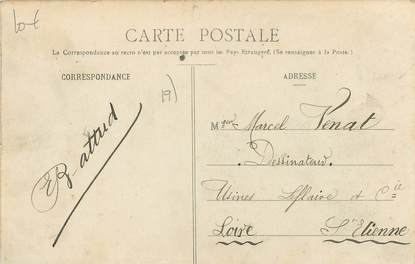 10€
CARTE POSTALE
La Correspondance au recto n'est pas acceptée par tous les Pays Étrangers. (Se renseignes à la Poste.)
CORRESPONDANCE
ADRESSE
19)
Marcel Venat
Dessinateur
Usines Leflaive et Cie
Loire St Etienne